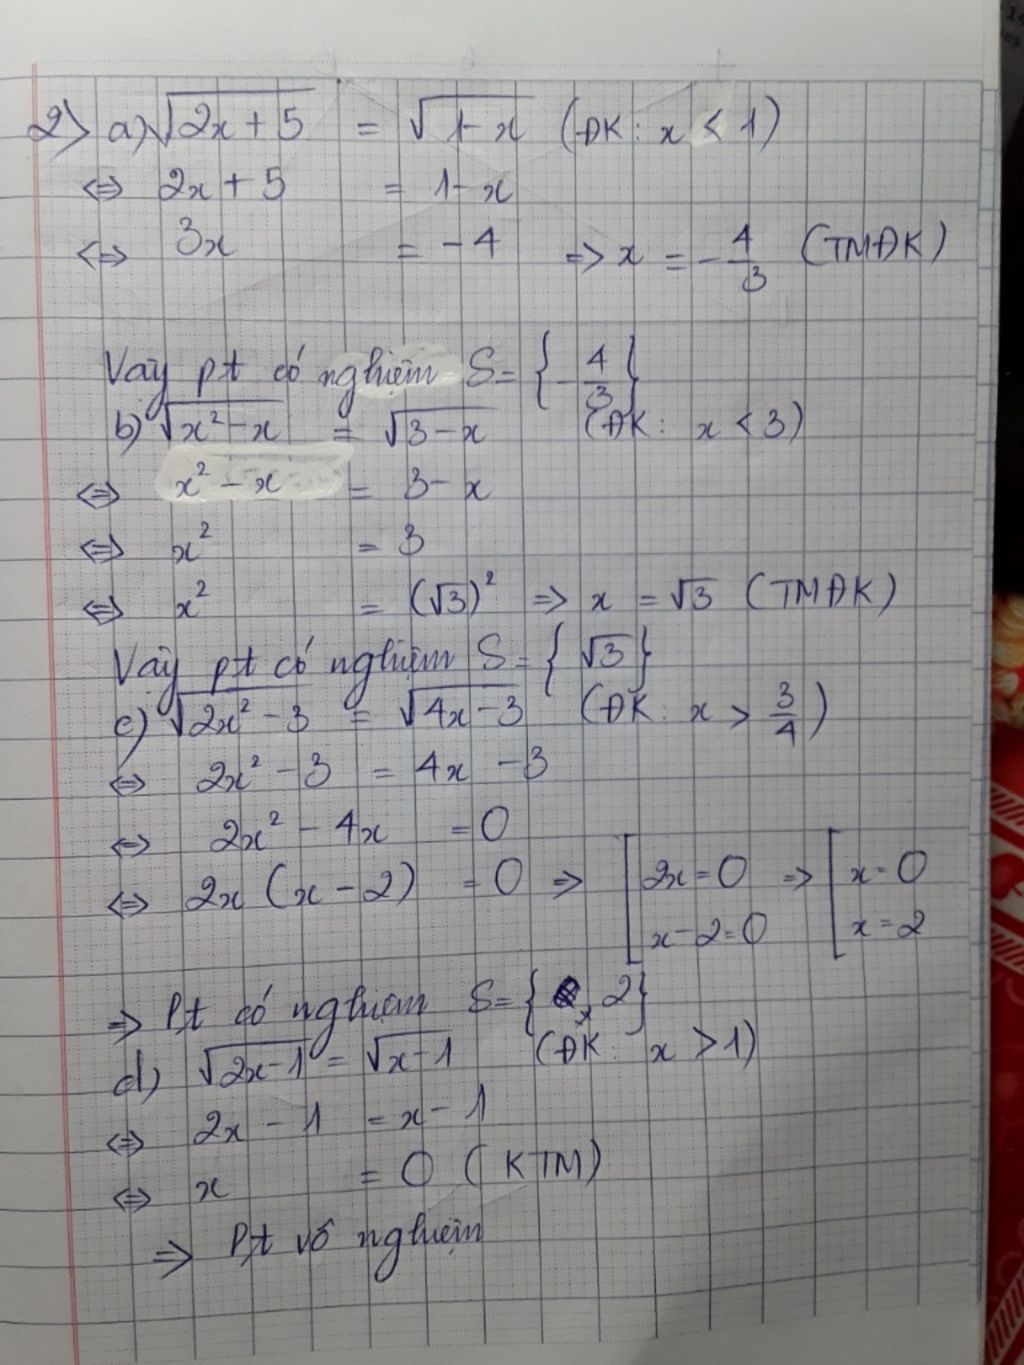 2) a) √(2x+5) = √(1-x) (ĐK: x < 1)
⇔ 2x + 5 = 1-x
⇔ 3x = -4 ⇒ x = -4/3 (TMĐK)
Vậy pt có nghiệm S= {-4/3}
b) √(x²-x) = √(3-x) (ĐK: x < 3)
⇔ x² - x = 3-x
⇔ x² = 3
⇔ x² = (√3)² ⇒ x = √3 (TMĐK)
Vậy pt có nghiệm S= {√3}
c) √(2x²-3) = √(4x-3) (ĐK: x > 3/4)
⇔ 2x² - 3 = 4x - 3
⇔ 2x² - 4x = 0
⇔ 2x (x-2) = 0 ⇒ [2x=0 ⇒ [x=0
x-2=0 x=2
⇒ Pt có nghiệm S={ , 2}
d) √(2x-1) = √(x-1) (ĐK: x > 1)
⇔ 2x - 1 = x - 1
⇔ x = 0 (KTM)
⇒ Pt vô nghiệm